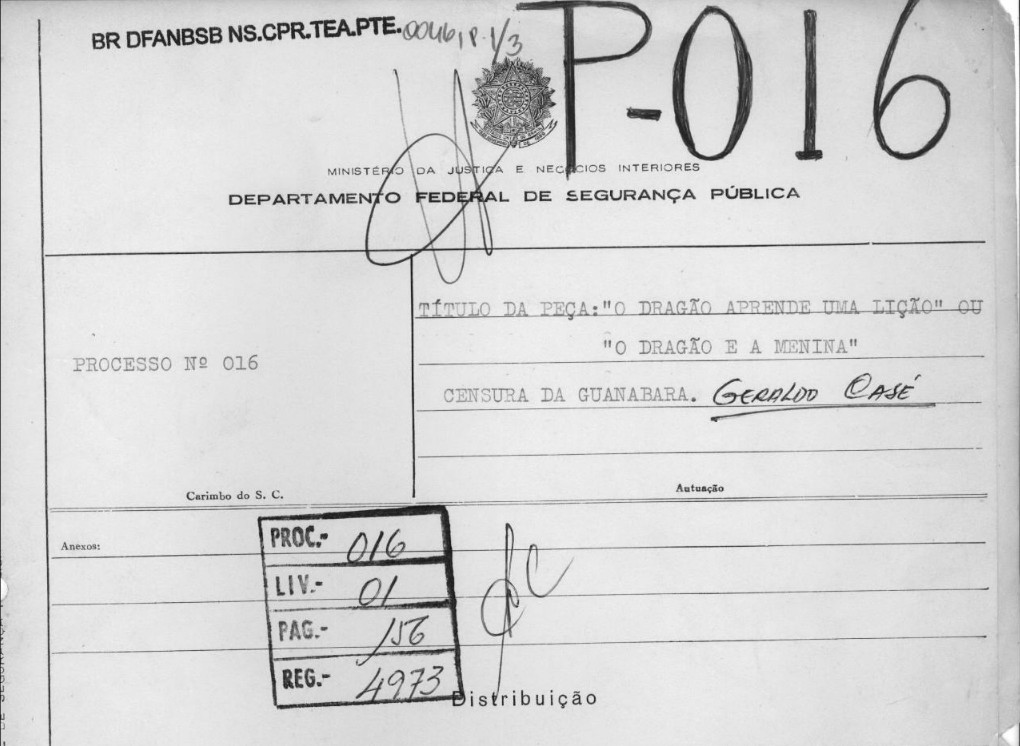 BR DFANBSB NS.CPR.TEA.PTE. 0046, P. 1/3
P-016
MINISTÉRIO DA JUSTIÇA E NEGÓCIOS INTERIORES
DEPARTAMENTO FEDERAL DE SEGURANÇA PÚBLICA
PROCESSO Nº 016
Carimbo do S. C.
TÍTULO DA PEÇA:"O DRAGÃO APRENDE UMA LIÇÃO" OU
"O DRAGÃO E A MENINA"
CENSURA DA GUANABARA. GERALDO CASÉ
Autuação
Anexos:
PROC.- 016
LIV.- 01
PAG.- 156
REG.- 4973
Distribuição